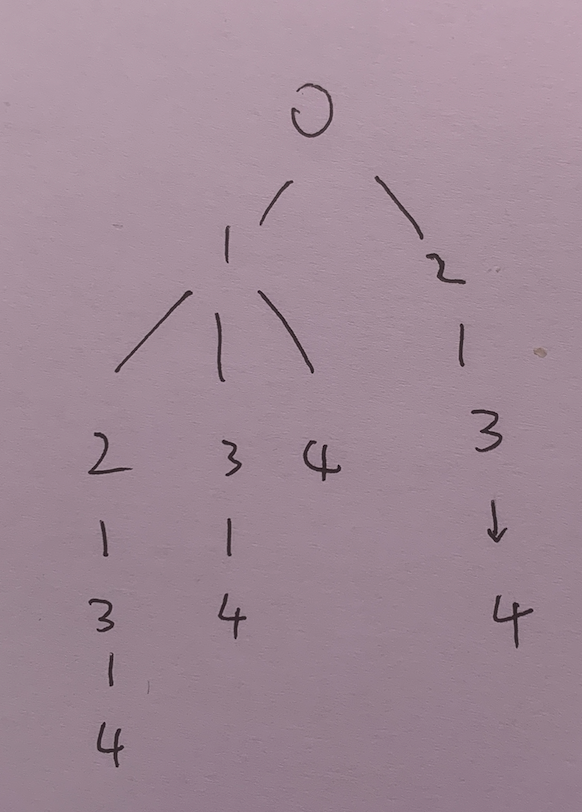 0
1 2
2 3 4 3
3 4 4
4